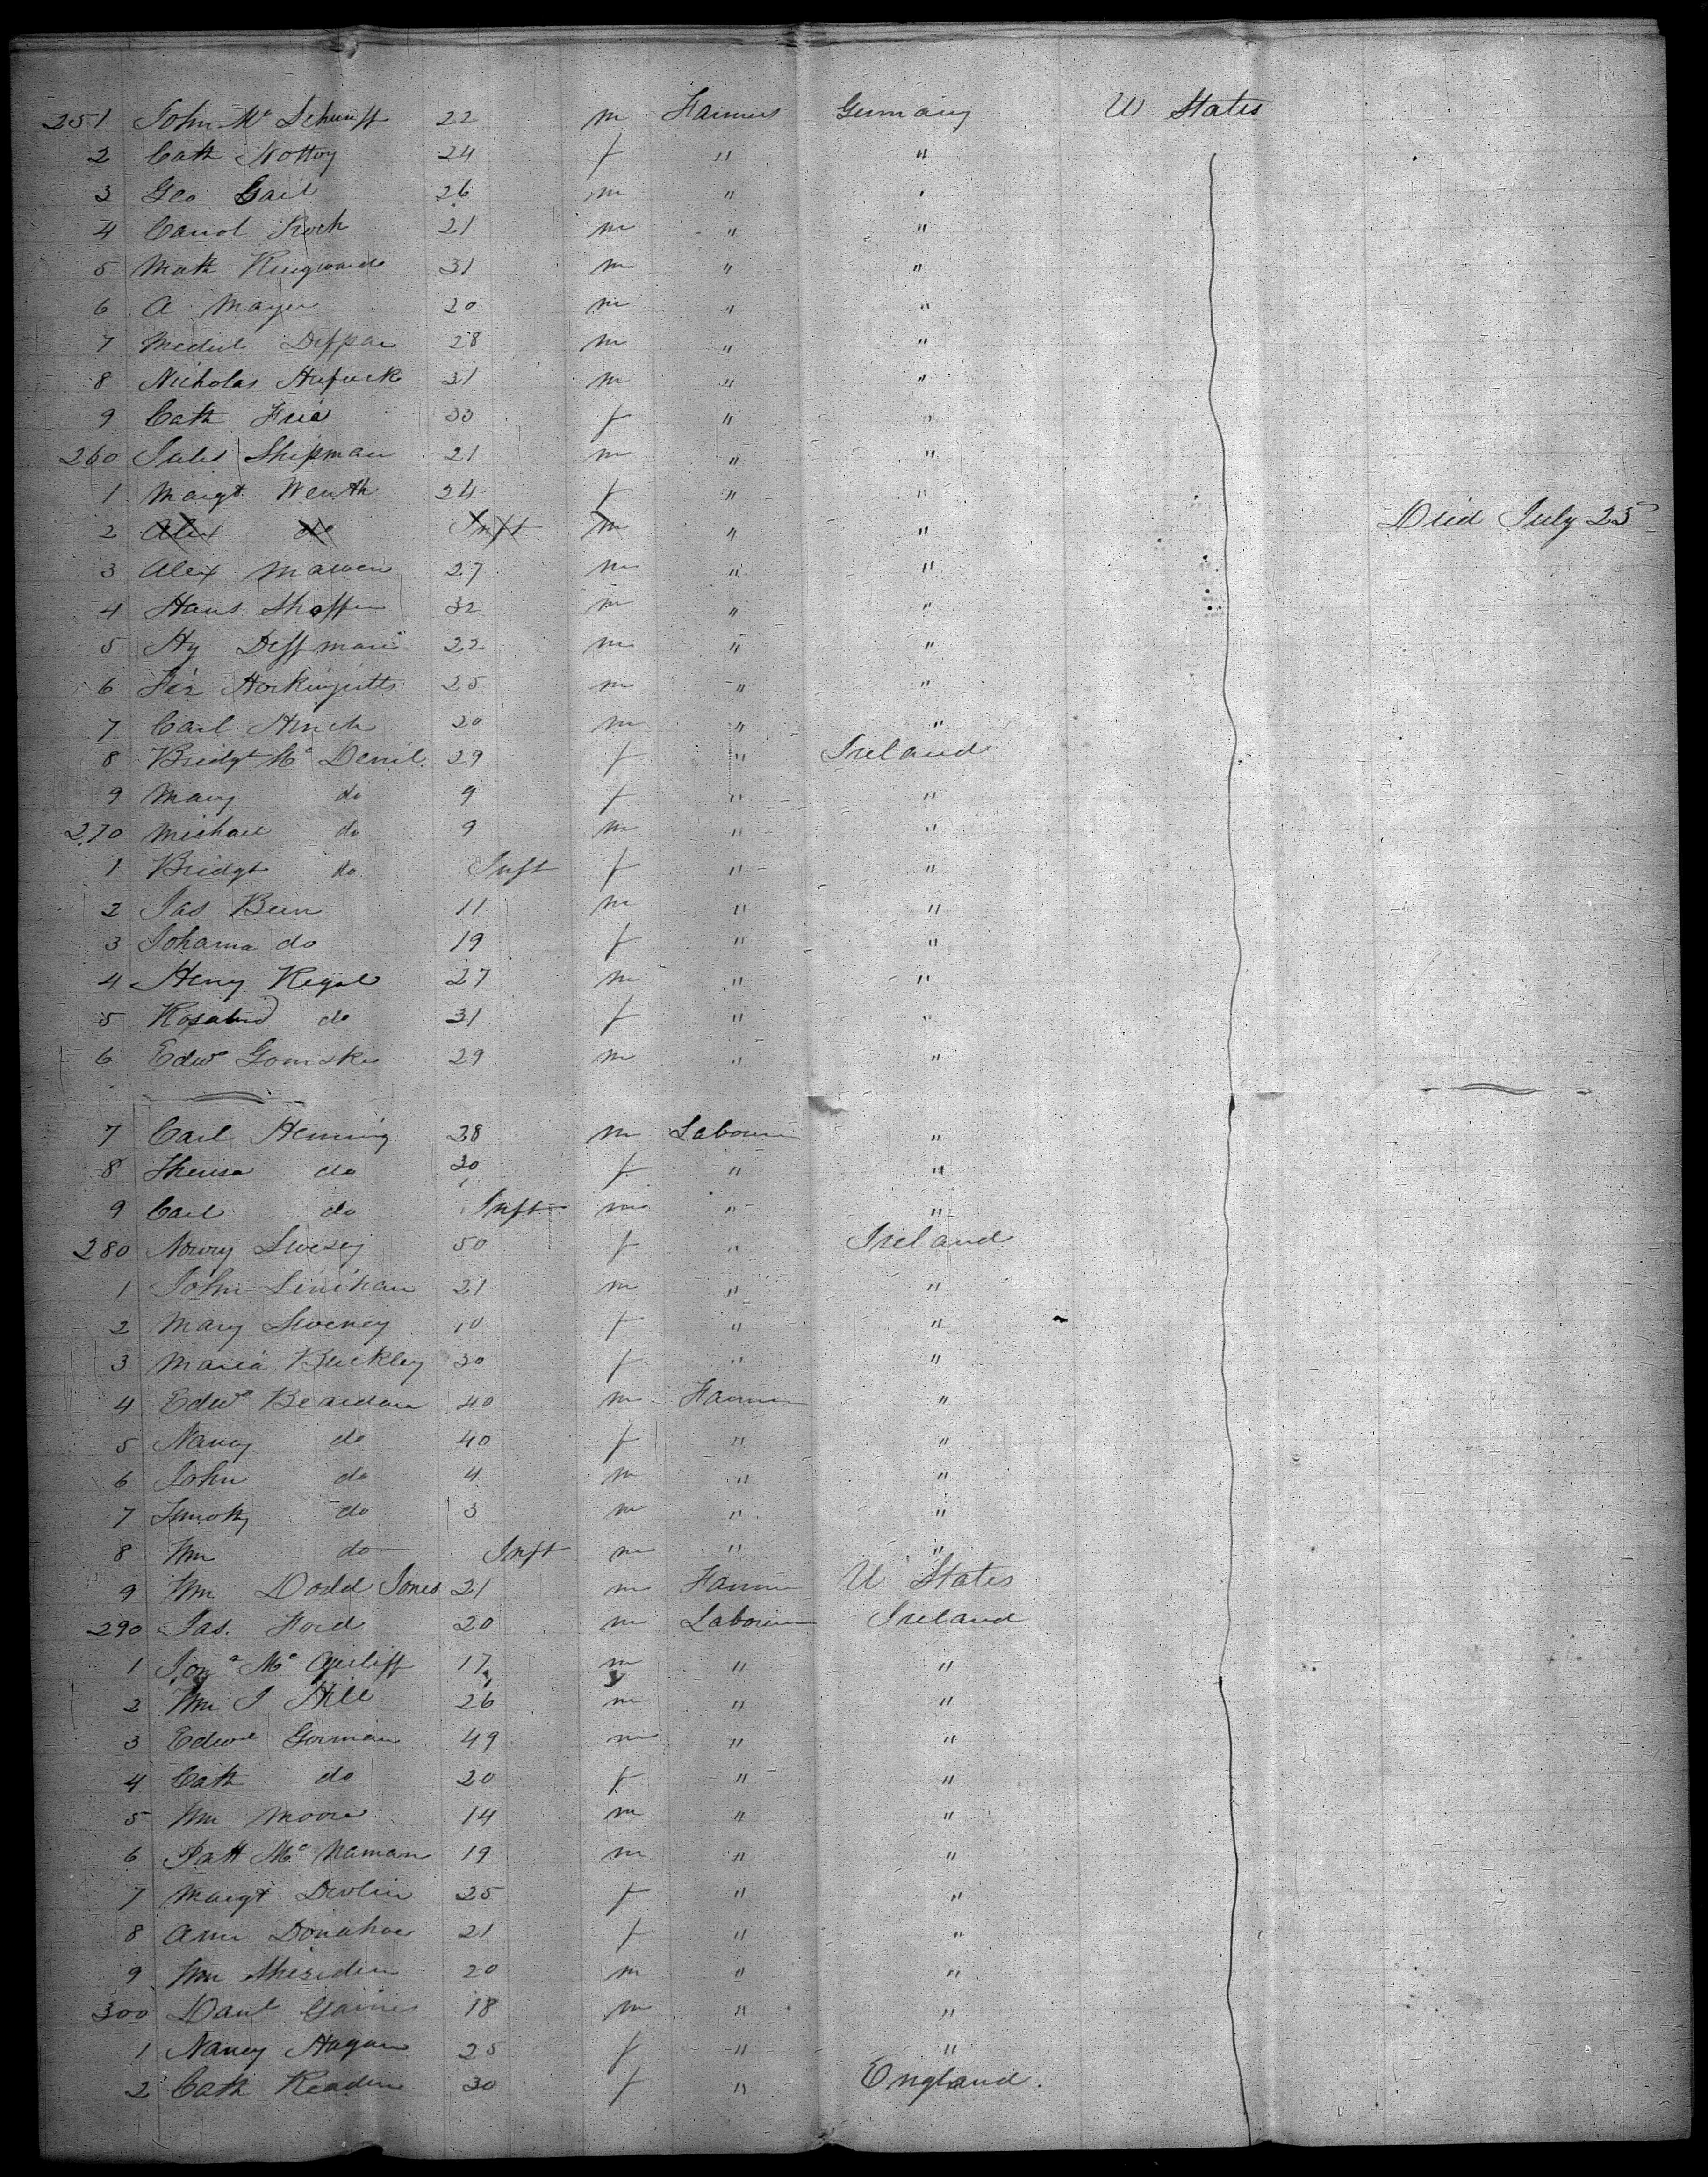 251 John Mc Schunff 22 m Farmers Germany U States
2 Cath Nottoy 24 f " "
3 Geo Gail 26 m " "
4 Carrol Koch 21 m " "
5 Math 31 m " "
6 A Mayer 20 m " "
7 28 m " "
8 Nicholas 31 m " "
9 Cath Fria 33 f " "
260 Jules Shipman 21 m " "
1 Margt Wenth 24 f " "
2 Alex do Inft m " " Died July 25
3 Alex Mawen 27 m " "
4 Hans Shaffer 32 m " "
5 Hy Deffman 22 m " "
6 25 m " "
7 Carl Hinch 20 m " "
8 Bridgt Mc Devil 29 f " Ireland
9 Mary do 9 f " "
270 Michael do 9 m " "
1 Bridgt do Inft f " "
2 Jas Bein 11 m " "
3 Johanna do 19 f " "
4 Henry Regal 27 m " "
5 Rosalind do 31 f " "
6 Edwd Gomske 29 m " "
7 Carl Henning 28 m Labourer "
8 Theresa do 30 f " "
9 Carl do Inft m " "
280 Swesey 50 f " Ireland
1 John Linihan 21 m " "
2 Mary Sweney 10 f " "
3 Maria Buckley 30 f " "
4 Edwd Beardon 40 m Farmer "
5 Nancy do 40 f " "
6 John do 4 m " "
7 Timothy do 3 m " "
8 Wm do Inft m " "
9 Wm Dodd Jones 21 m Farmer U States
290 Jas. Ford 20 m Labourer Ireland
1 Mc Auliff 17 m " "
2 Wm J Hill 26 m " "
3 Edwd Gorman 49 m " "
4 Cath do 20 f " "
5 Wm Moore 14 m " "
6 Patt Mc Naman 19 m " "
7 Margt Devlin 25 f " "
8 Ann Donahoe 21 f " "
9 Wm Sheriden 20 m " "
300 Danl Gaines 18 m " "
1 Nancy Hagan 25 f " "
2 Cath Readen 30 f " England.